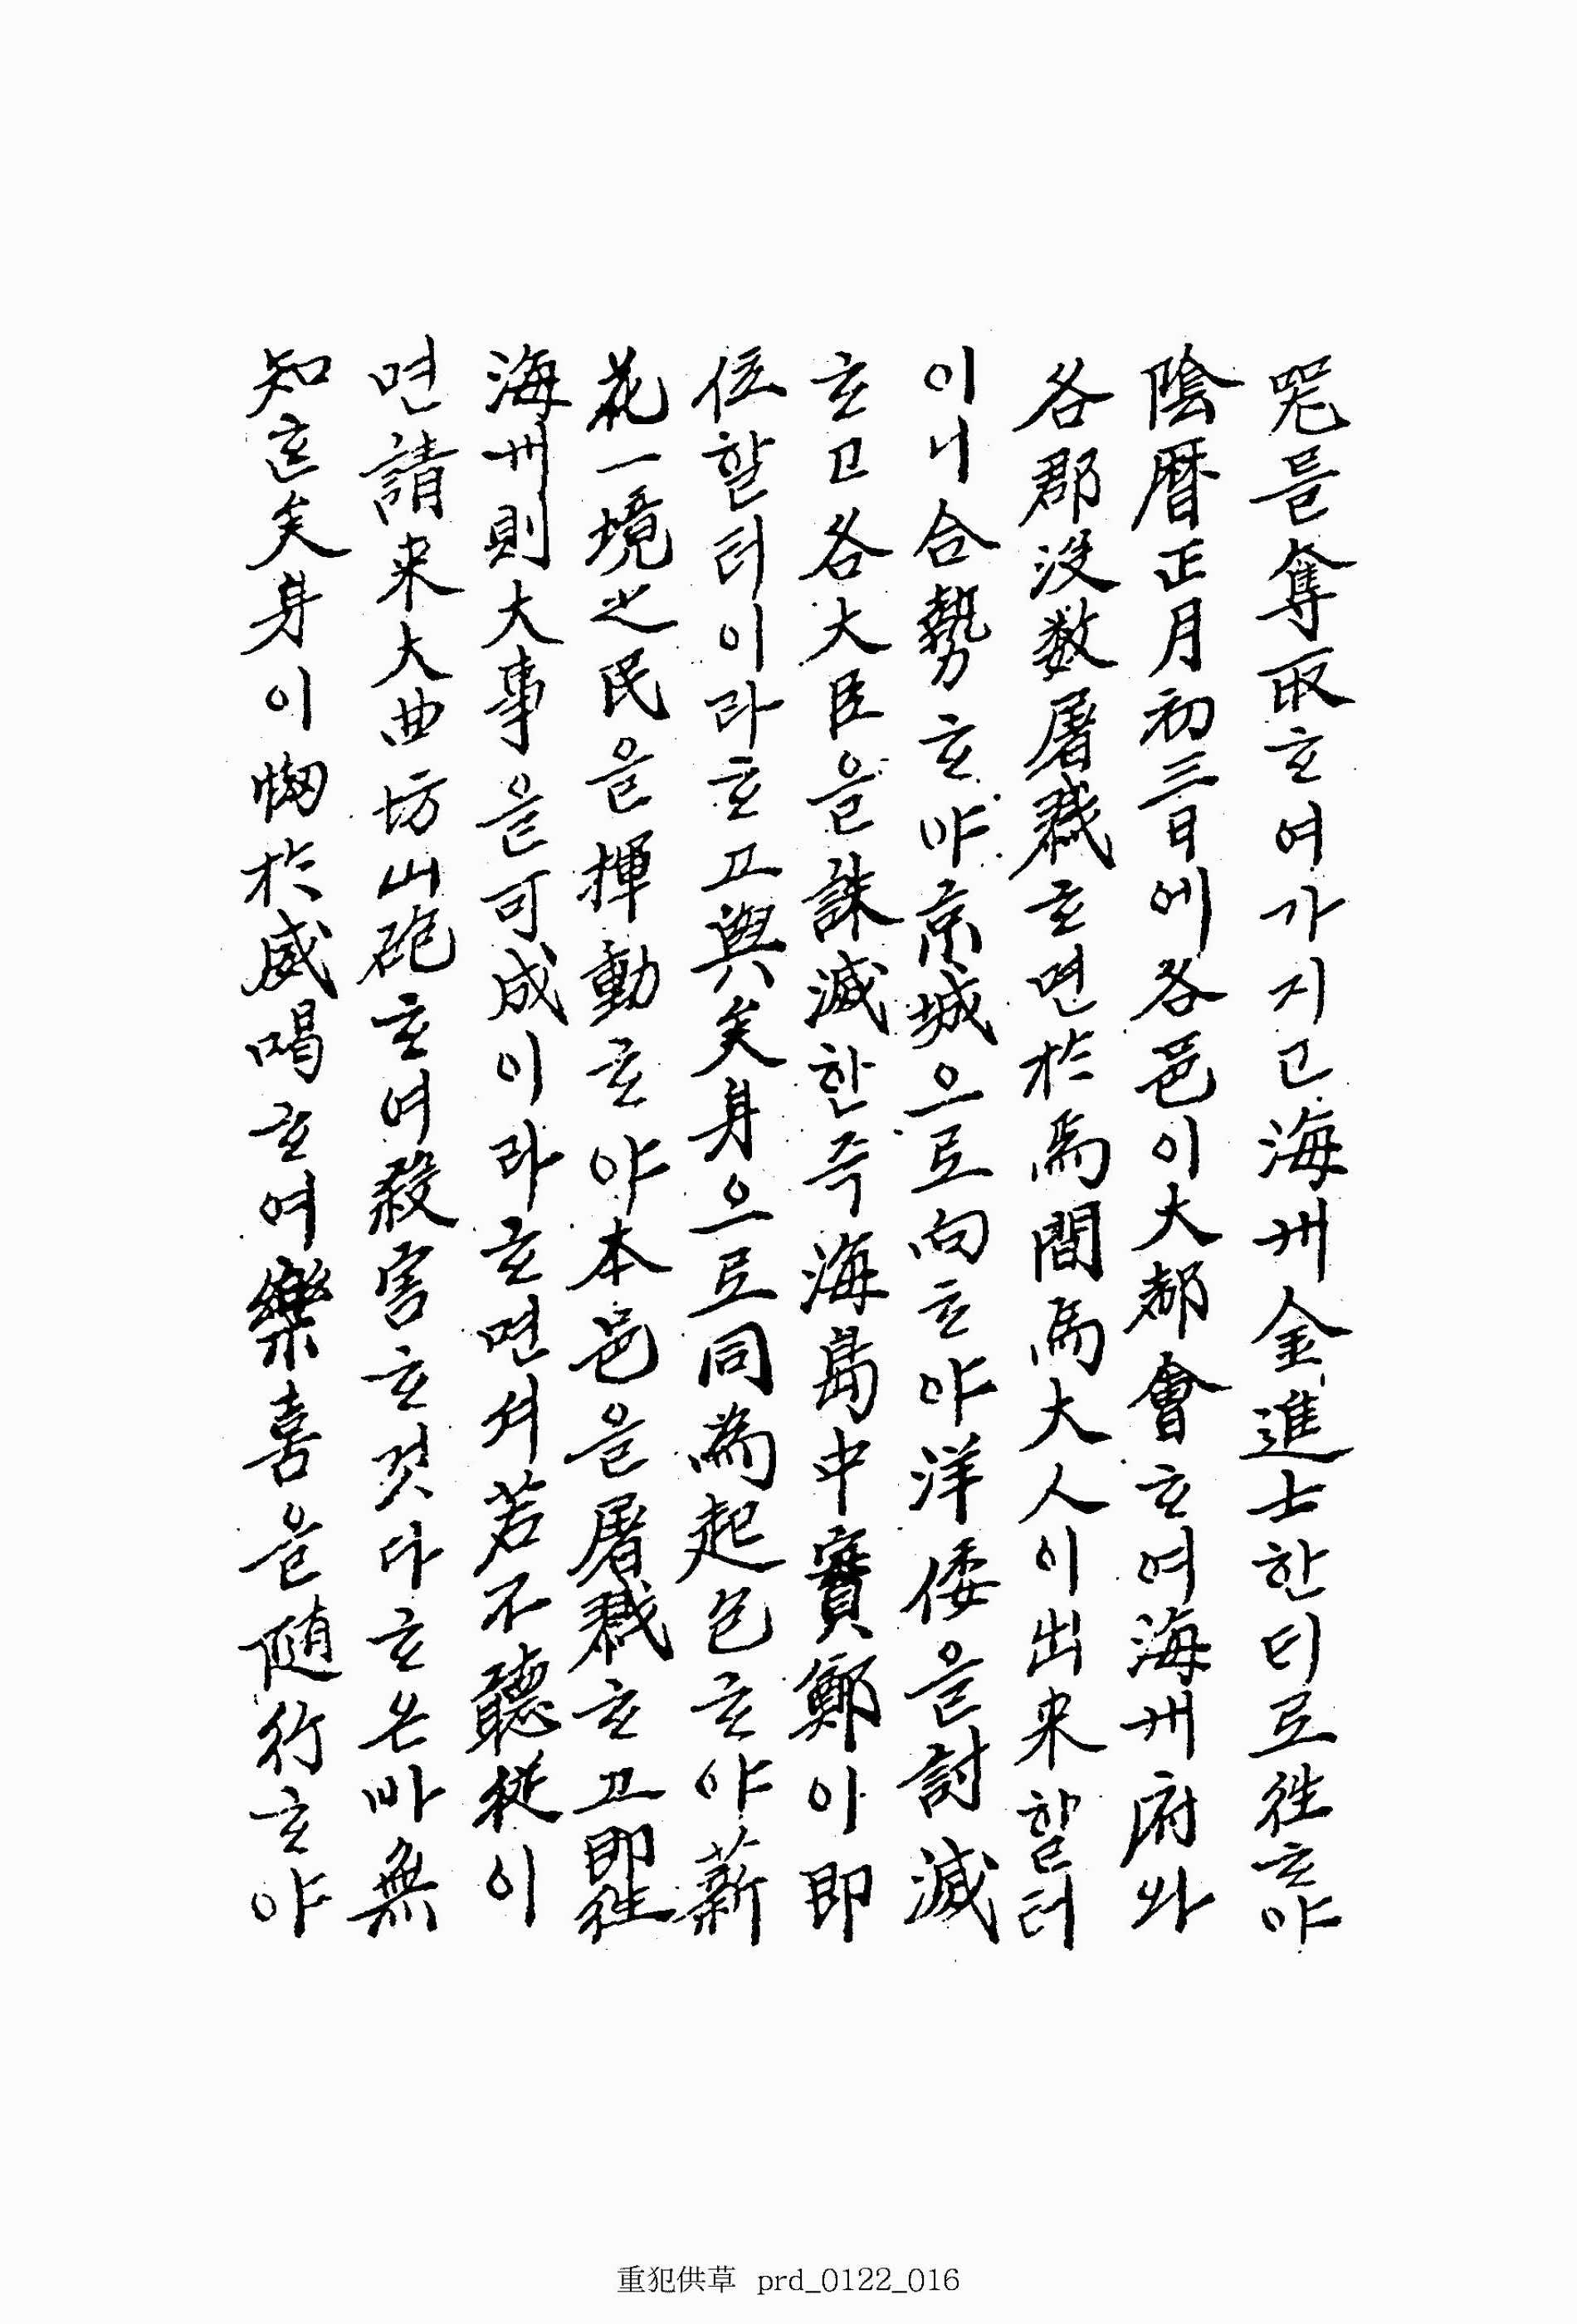 믈奪取ᄒᆞ여가지고海州金進士한ᄃᆡ로徃ᄒᆞ야
陰曆正月初三日에各邑이大都會ᄒᆞ여海州府와
各郡沒數屠戮ᄒᆞ면於焉間焉大人이出来할터
이니合勢ᄒᆞ야京城으로向ᄒᆞ야洋倭을討滅
ᄒᆞ고各大臣을誅滅한즉海島中寶鄭이卽
位할터이라ᄒᆞ고與矣身으로同爲起包ᄒᆞ야薪
花一境之民을揮動ᄒᆞ야本邑을屠戮ᄒᆞ고卽徃
海州則大事을可成이라ᄒᆞ면셔若不聽從이
면請来大曲坊山砲ᄒᆞ여殺害ᄒᆞ것다ᄒᆞ온바無
知ᄒᆞᆫ矣身이㤼於威喝ᄒᆞ여樂喜을随行ᄒᆞ야
重犯供草 prd_0122_016